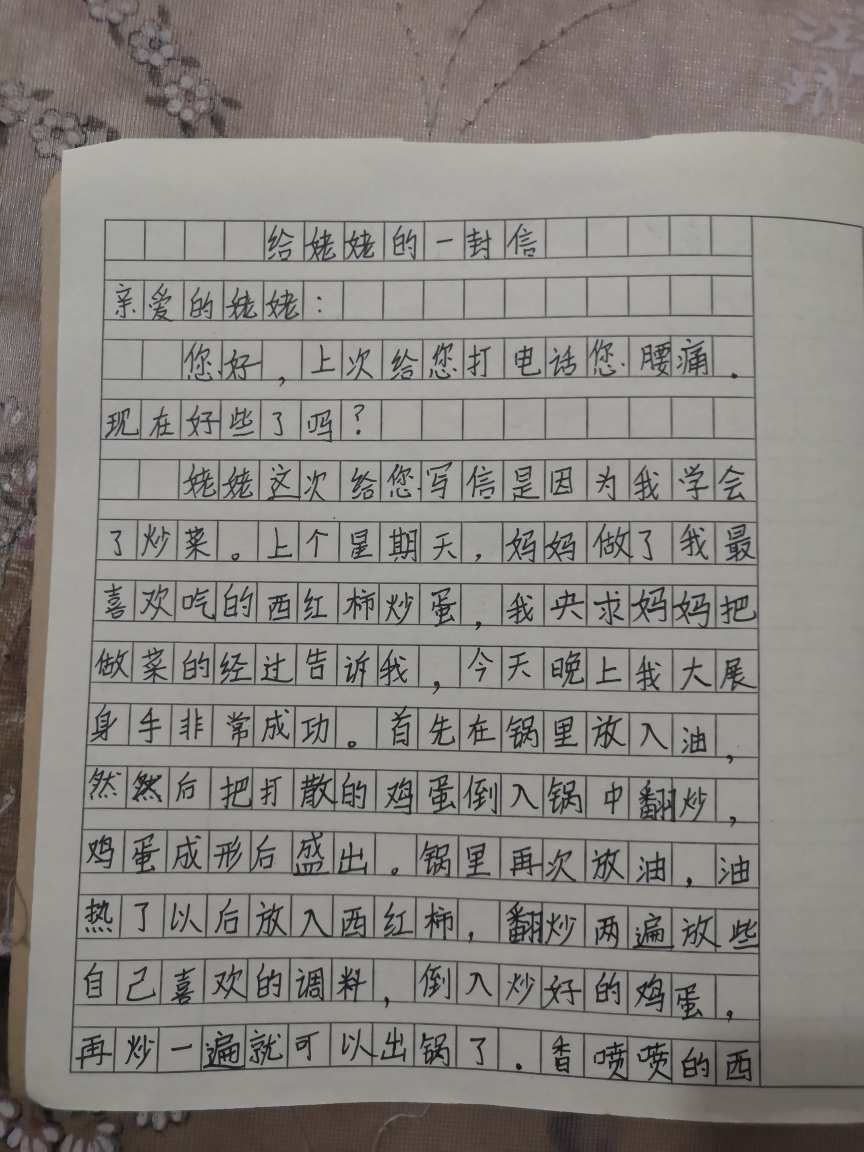 给姥姥的一封信
亲爱的姥姥：
您好，上次给您打电话您腰痛．
现在好些了吗？
姥姥这次给您写信是因为我学会
了炒菜。上个星期天，妈妈做了我最
喜欢吃的西红柿炒蛋，我央求妈妈把
做菜的经过告诉我，今天晚上我大展
身手非常成功。首先在锅里放入油，
然然后把打散的鸡蛋倒入锅中翻炒，
鸡蛋成形后盛出。锅里再次放油，油
热了以后放入西红柿，翻炒两遍放些
自己喜欢的调料，倒入炒好的鸡蛋，
再炒一遍就可以出锅了．香喷喷的西